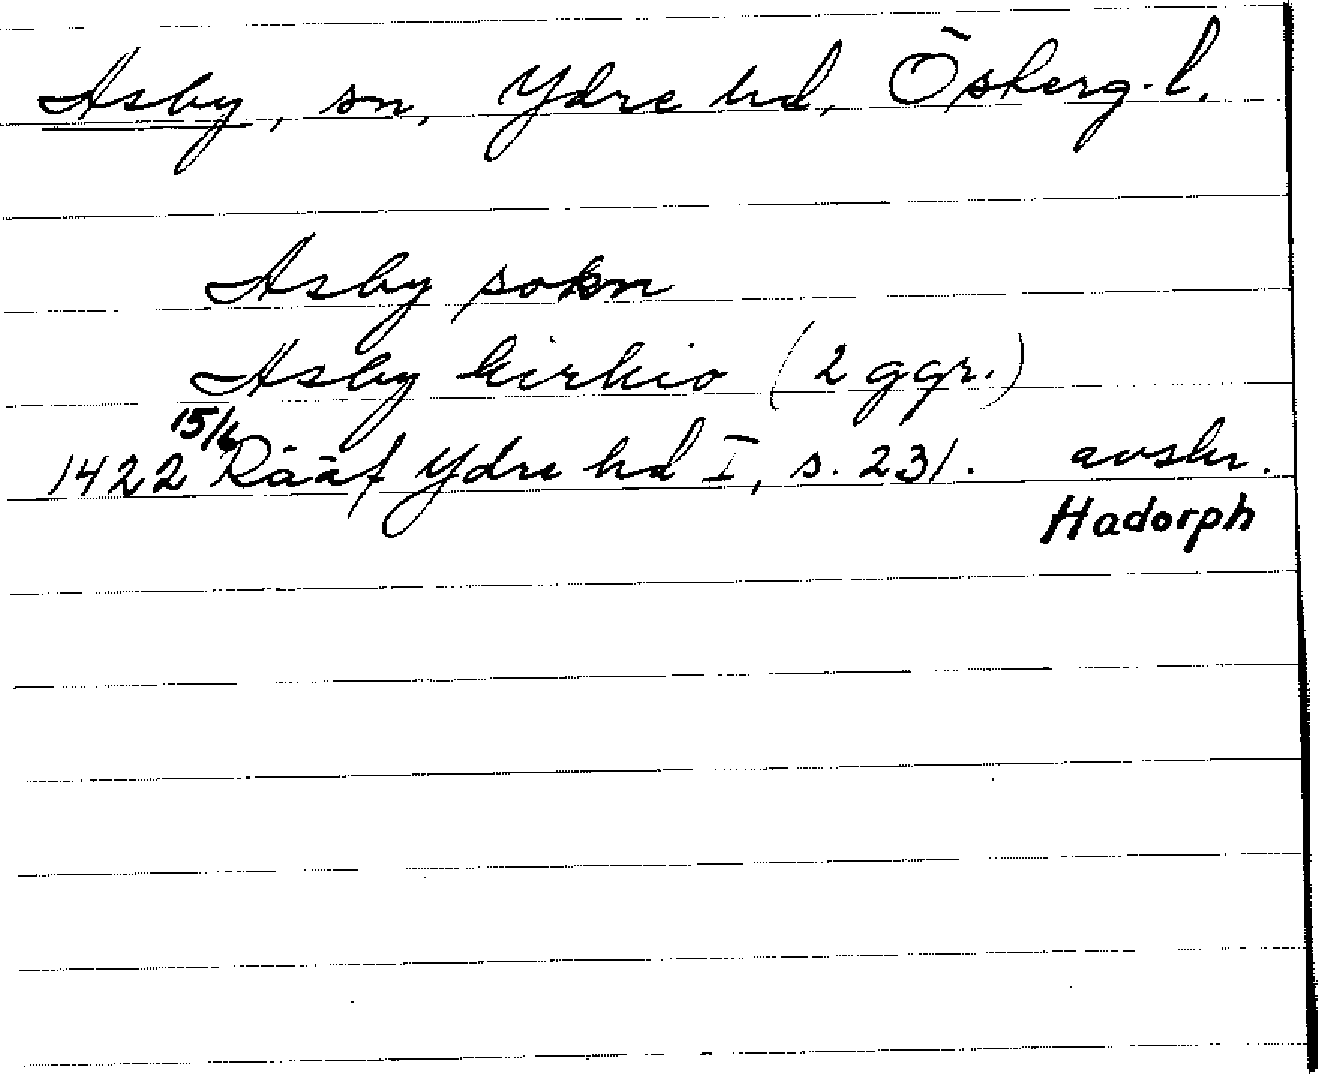 Asby, sn, Ydre hd, Österg. l.
Asby sokn
Asby kirkio (2 ggr.)
1422 15/6 Rääf Ydre hd I, s. 231. avskr.
Hadorph